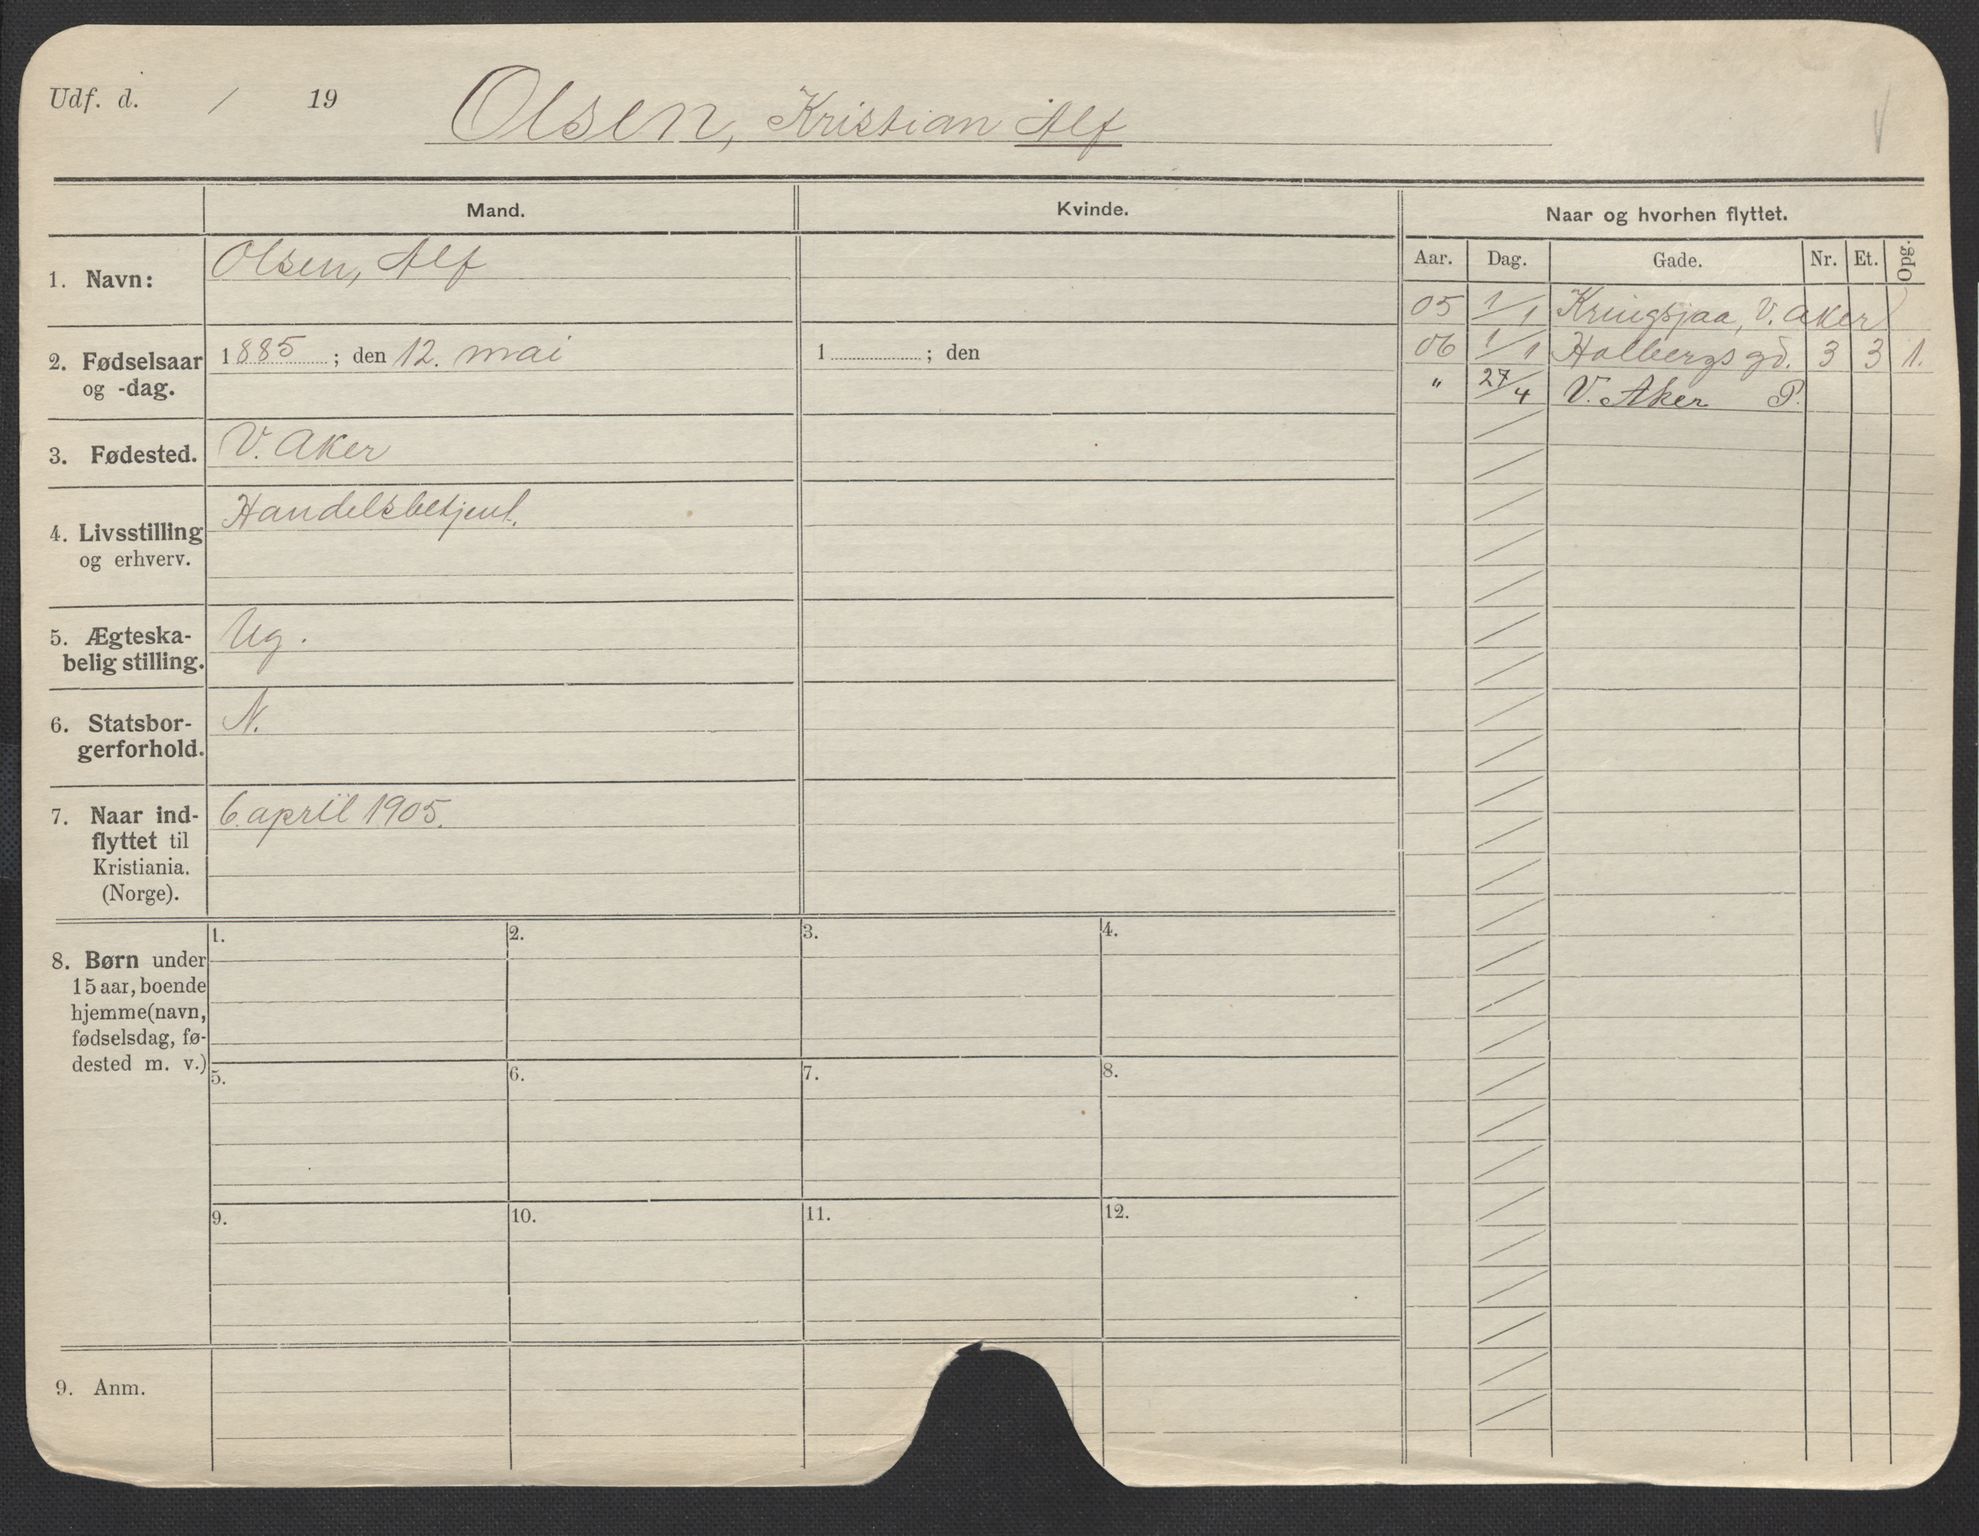 Udf. d. / 19 Olsen, Kristian Alf
Mand. Kvinde. Naar og hvorhen flyttet.
Aar. Dag. Gade. Nr. Et. Opg.
1. Navn: Olsen, Alf
2. Fødselsaar og -dag. 1885; den 12. mai 1 ; den
3. Fødested. V. Aker
4. Livsstilling og erhverv. Handelsbetjent.
5. Ægteska-
belig stilling. Ug.
6. Statsbor-
gerforhold. N.
7. Naar ind-
flyttet til
Kristiania.
(Norge). 6. april 1905.
05 1/1 Kringsjaa, V. Aker
06 1/1 Holbergs gd. 3 3 1.
" 27/4 V. Aker P.
8. Børn under
15 aar, boende
hjemme (navn,
fødselsdag, fø-
dested m. v.)
1. 2. 3. 4.
5. 6. 7. 8.
9. 10. 11. 12.
9. Anm.